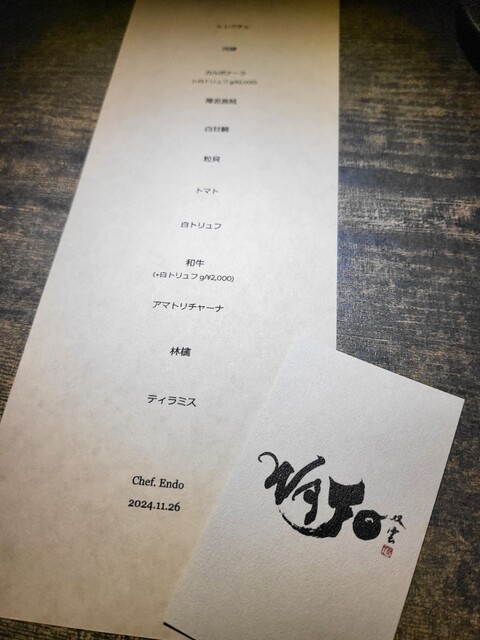 カルボナーラ
(+白トリュフ g/¥2,000)
白甘鯛
粒貝
トマト
白トリュフ
和牛
(+白トリュフ g/¥2,000)
アマトリチャーナ
林檎
ティラミス
Chef. Endo
2024.11.26
双雲